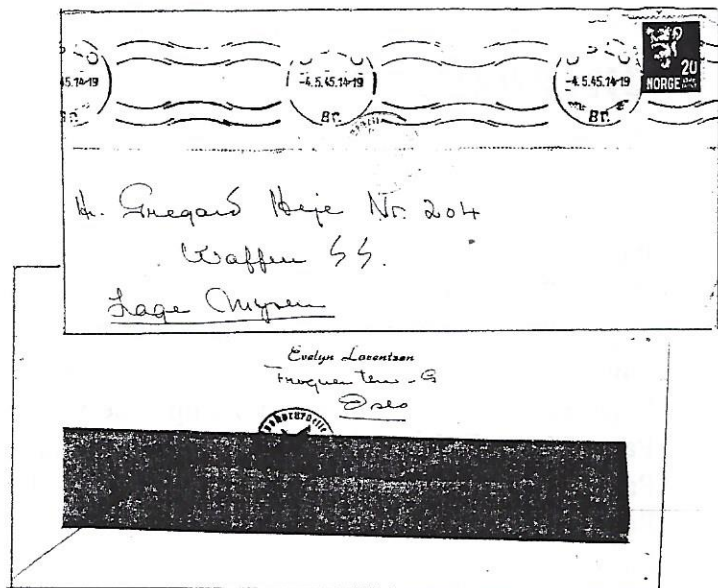 45.14-19
-4.5.45.14-19
Br.
-4.5.45.14-19
Br.
20
NORGE
Hr. Gregard Heje Nr. 204
Waffen SS.
Lage Mysen
Evelyn Lorentzen
Oslo